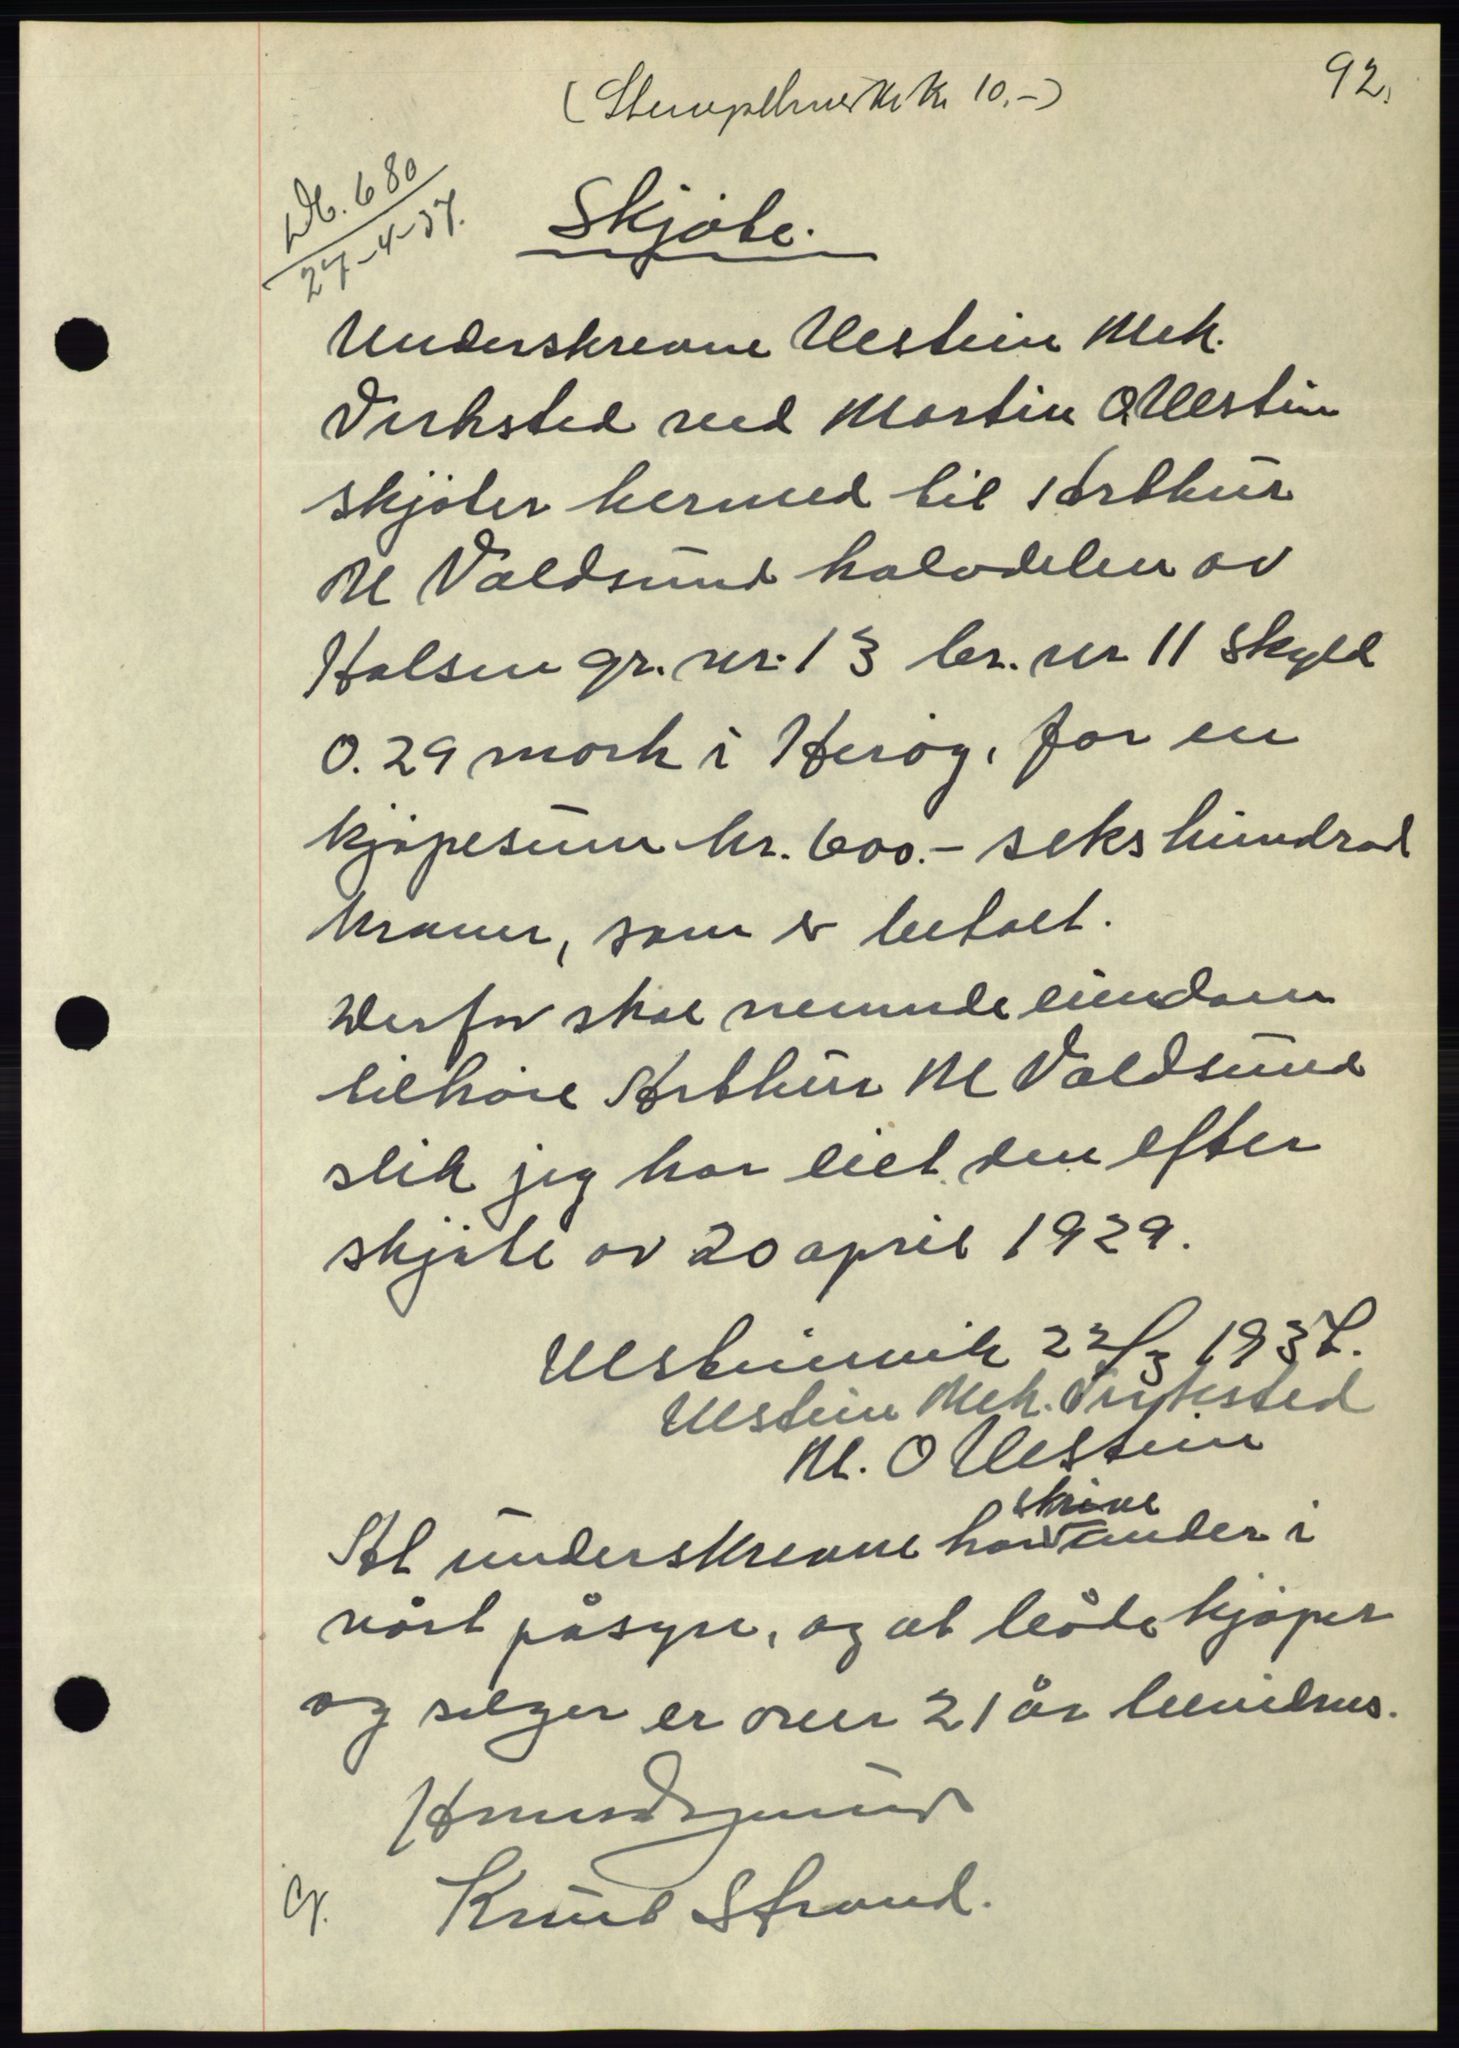 92.
(Stempelmerke kr 10.-)
Db. 680
27-4-37.
Skjøte.
Underskrevne Ulstein Mek.
Verksted ved Martin O. Ulstein
skjøter hermed til Arthur
M Valdsund halvdelen av
Halsen gr. nr. 13 br. nr 11 skyld
0.29 mark i Herøy, for en
kjøpesum kr. 600.- seks hundrad
kroner, som er betalt.
Derfor skal nemnde eiendom
tilhøre Arthur M Valdsund
slik jeg har eiet den efter
skjøte av 20 april 1929.
Ulsteinvik 22/3 1937.
Ulstein Mek. Verksted
M. O Ulstein
skrive
At underskrevne har under i
vårt påsyn, og at både kjøper
og selger er over 21 år bevidnes.
Knut Strand.